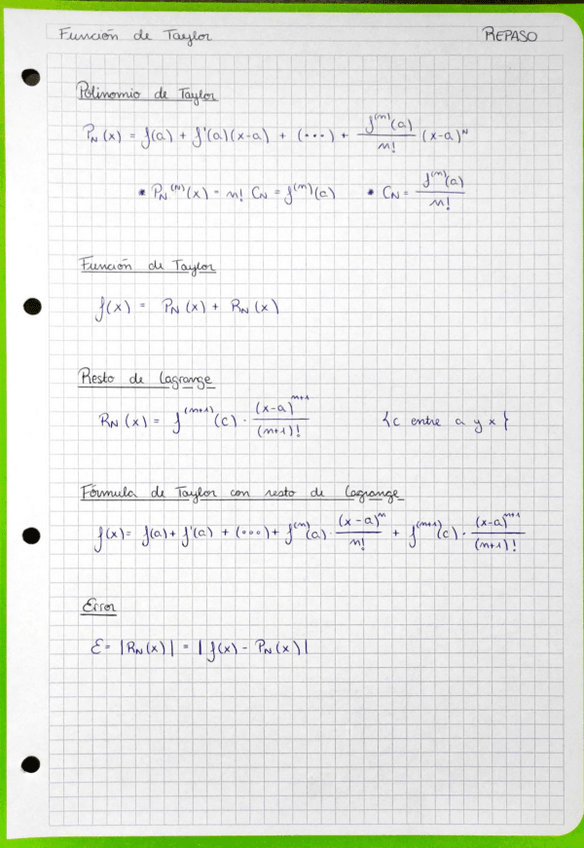 Función de Taylor REPASO
Polinomio de Taylor
P_N(x) = f(a) + f'(a)(x-a) + (...) + f^(n)(a)/n! (x-a)^N
* P_N^(N)(x) = n! C_N = f^(n)(a) * C_N = f^(n)(a)/n!
Función de Taylor
f(x) = P_N(x) + R_N(x)
Resto de Lagrange
R_N(x) = f^(n+1)(c) · (x-a)^n+1/(n+1)! {c entre a y x}
Fórmula de Taylor con resto de Lagrange
f(x) = f(a) + f'(a) + (...) + f^(n)(a) · (x-a)^n/n! + f^(n+1)(c) · (x-a)^n+1/(n+1)!
Error
Ɛ = |R_N(x)| = |f(x) - P_N(x)|